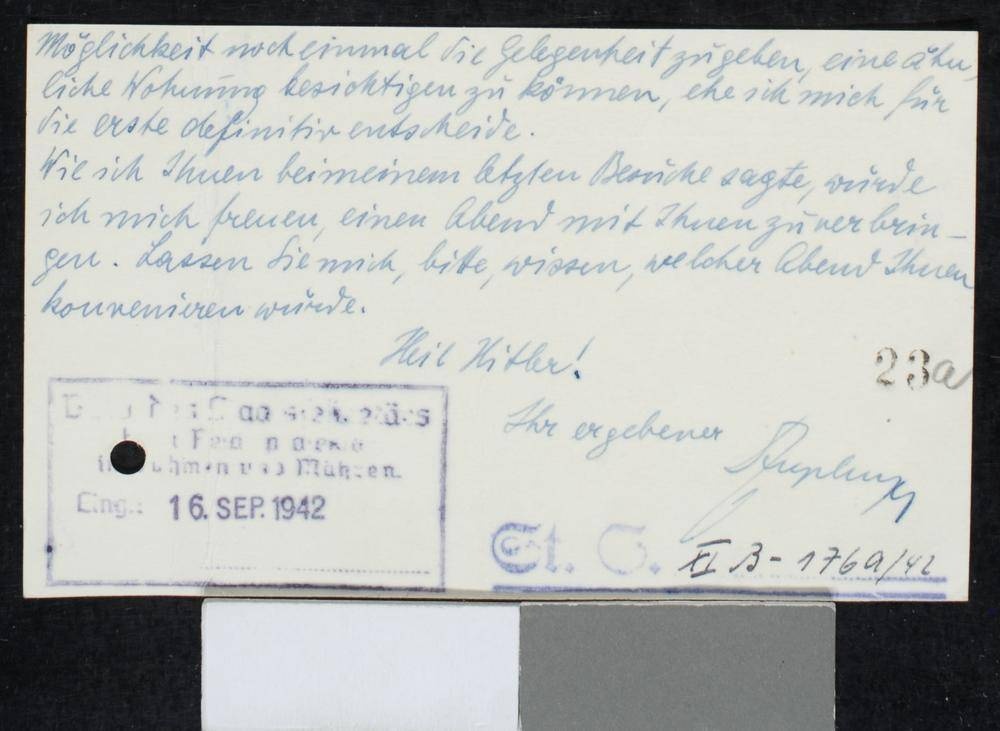 Möglichkeit noch einmal die Gelegenheit zu geben, eine ähn,
liche Wohnung besichtigen zu können, ehe ich mich für
die erste definitiv entscheide.
Wie ich Ihnen bei meinem letzten Besuche sagte, würde
ich mich freuen, einen Abend mit Ihnen zu verbrin-
gen. Lassen Sie mich, bitte, wissen, welcher Abend Ihnen
konvenieren würde.
Heil Hitler!
23a
Ihr ergebener
Mähren.
Eing.: 16. SEP. 1942
St. S. XI B - 176a/42